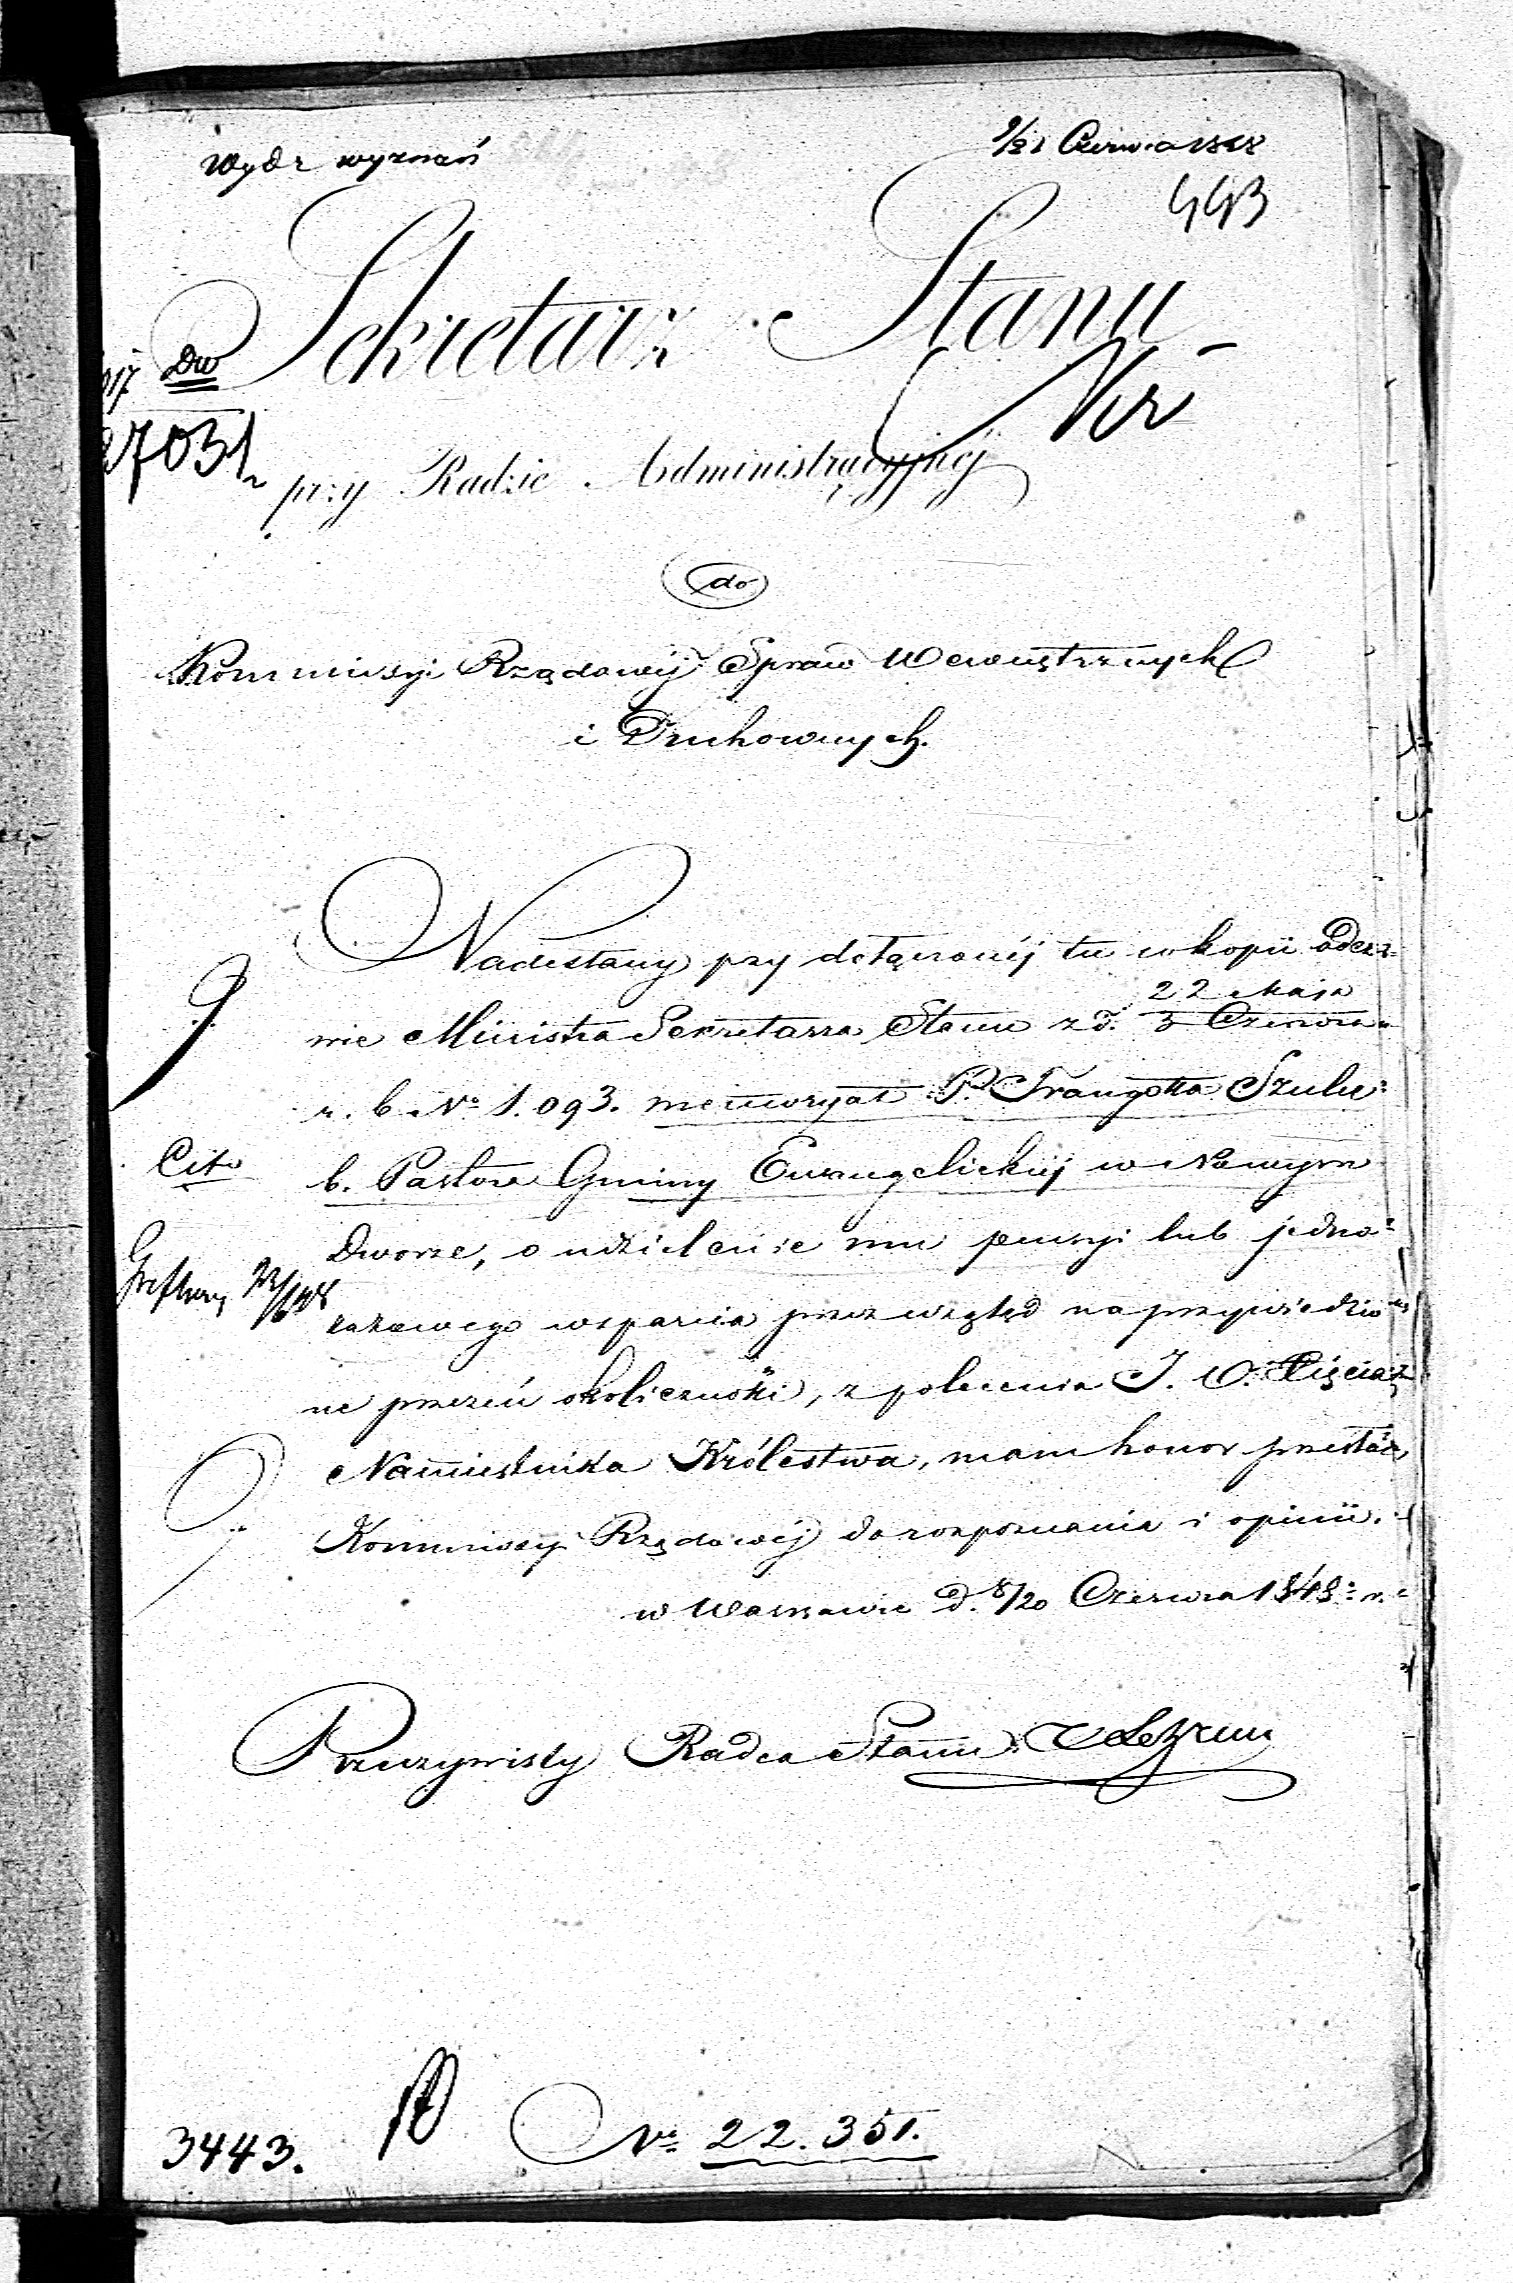 Wydz wyznań
9/21 Czerwca 1848
443
Sekretarz Stanu
Dw
27031
przy Radzie Administracyjnéj
do
Kommissyi Rządowéj Spraw Wewnętrznych
i Duchownych.
Nadesłany przy dołączonéj tu w kopii odez=
22 Maja
wie Ministra Sekretarza Stanu z d. 3 Czerwca
r. b. No 1.093. memoryał P. Traugotta Szulc
Cito
b. Pastora Gminy Ewangelickiéj w Nowym
Dworze, o udzielenie mu pensyi lub jedno=
razowego wsparcia przez wzgląd na przywiedzio=
ne przezeń okoliczności, z polecenia J. O. Xięcia
Namiestnika Królestwa, mam honor przesłać
Kommissyi Rządowéj do rozpoznania i opinii.
w Warszawie d. 8/20 Czerwca 1848 r.
Rzeczywisty Radca Stanu
3443.
No 22.351.